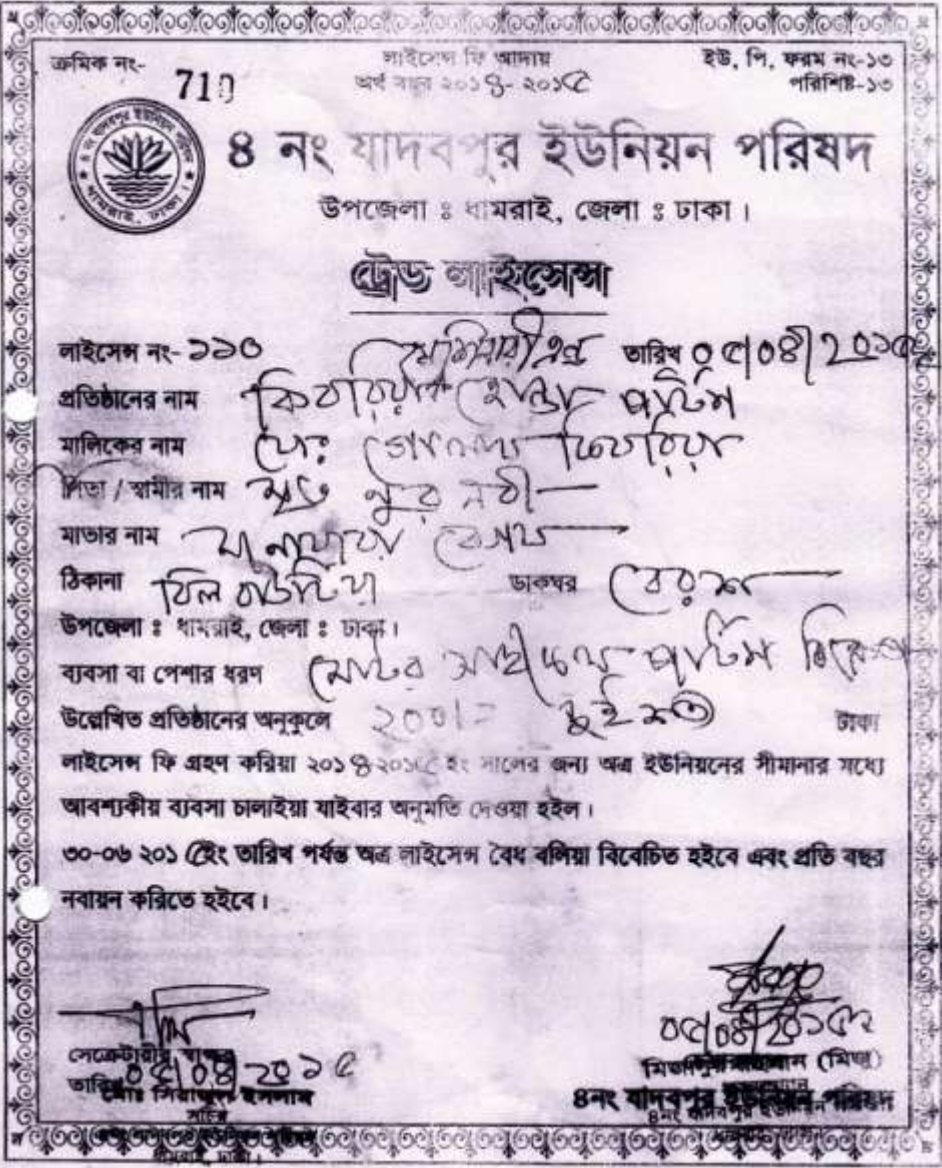 ক্রমিক নং-
710
লাইসেন্স ফি আদায়
অর্থ বছর ২০১৪-২০১৫
ইউ, পি, ফরম নং-১৩
পরিশিষ্ট-১৩
৪ নং যাদবপুর ইউনিয়ন পরিষদ
উপজেলা ঃ ধামরাই, জেলা ঃ ঢাকা।
ট্রেড লাইসেন্স
লাইসেন্স নং- ১১৩ তারিখ ০৫/০৪/২০১৫
প্রতিষ্ঠানের নাম কিবরিয়া হোন্ডা পার্টস
মালিকের নাম মোঃ গোলাম কিবরিয়া
পিতা / স্বামীর নাম মৃত নুর নবী
মাতার নাম মনোয়ারা বেগম
ঠিকানা বিল বাউটিয়া ডাকঘর বেরশ
উপজেলা ঃ ধামরাই, জেলা ঃ ঢাকা।
ব্যবসা বা পেশার ধরণ মোটর সাইকেল পার্টস বিক্রেতা
উল্লেখিত প্রতিষ্ঠানের অনুকুলে ২০০/= দুইশত টাকা
লাইসেন্স ফি গ্রহণ করিয়া ২০১৪-২০১৫ ইং সালের জন্য অত্র ইউনিয়নের সীমানার মধ্যে
আবশ্যকীয় ব্যবসা চালাইয়া যাইবার অনুমতি দেওয়া হইল।
৩০-০৬ ২০১৫ইং তারিখ পর্যন্ত অত্র লাইসেন্স বৈধ বলিয়া বিবেচিত হইবে এবং প্রতি বছর
নবায়ন করিতে হইবে।
০৫/০৪/২০১৫
সেক্রেটারীর স্বাক্ষর
তারিখ ০৫/০৪/২০১৫
মোঃ সিরাজুল ইসলাম
সচিব
(মিজু)
৪নং যাদবপুর ইউনিয়ন পরিষদ